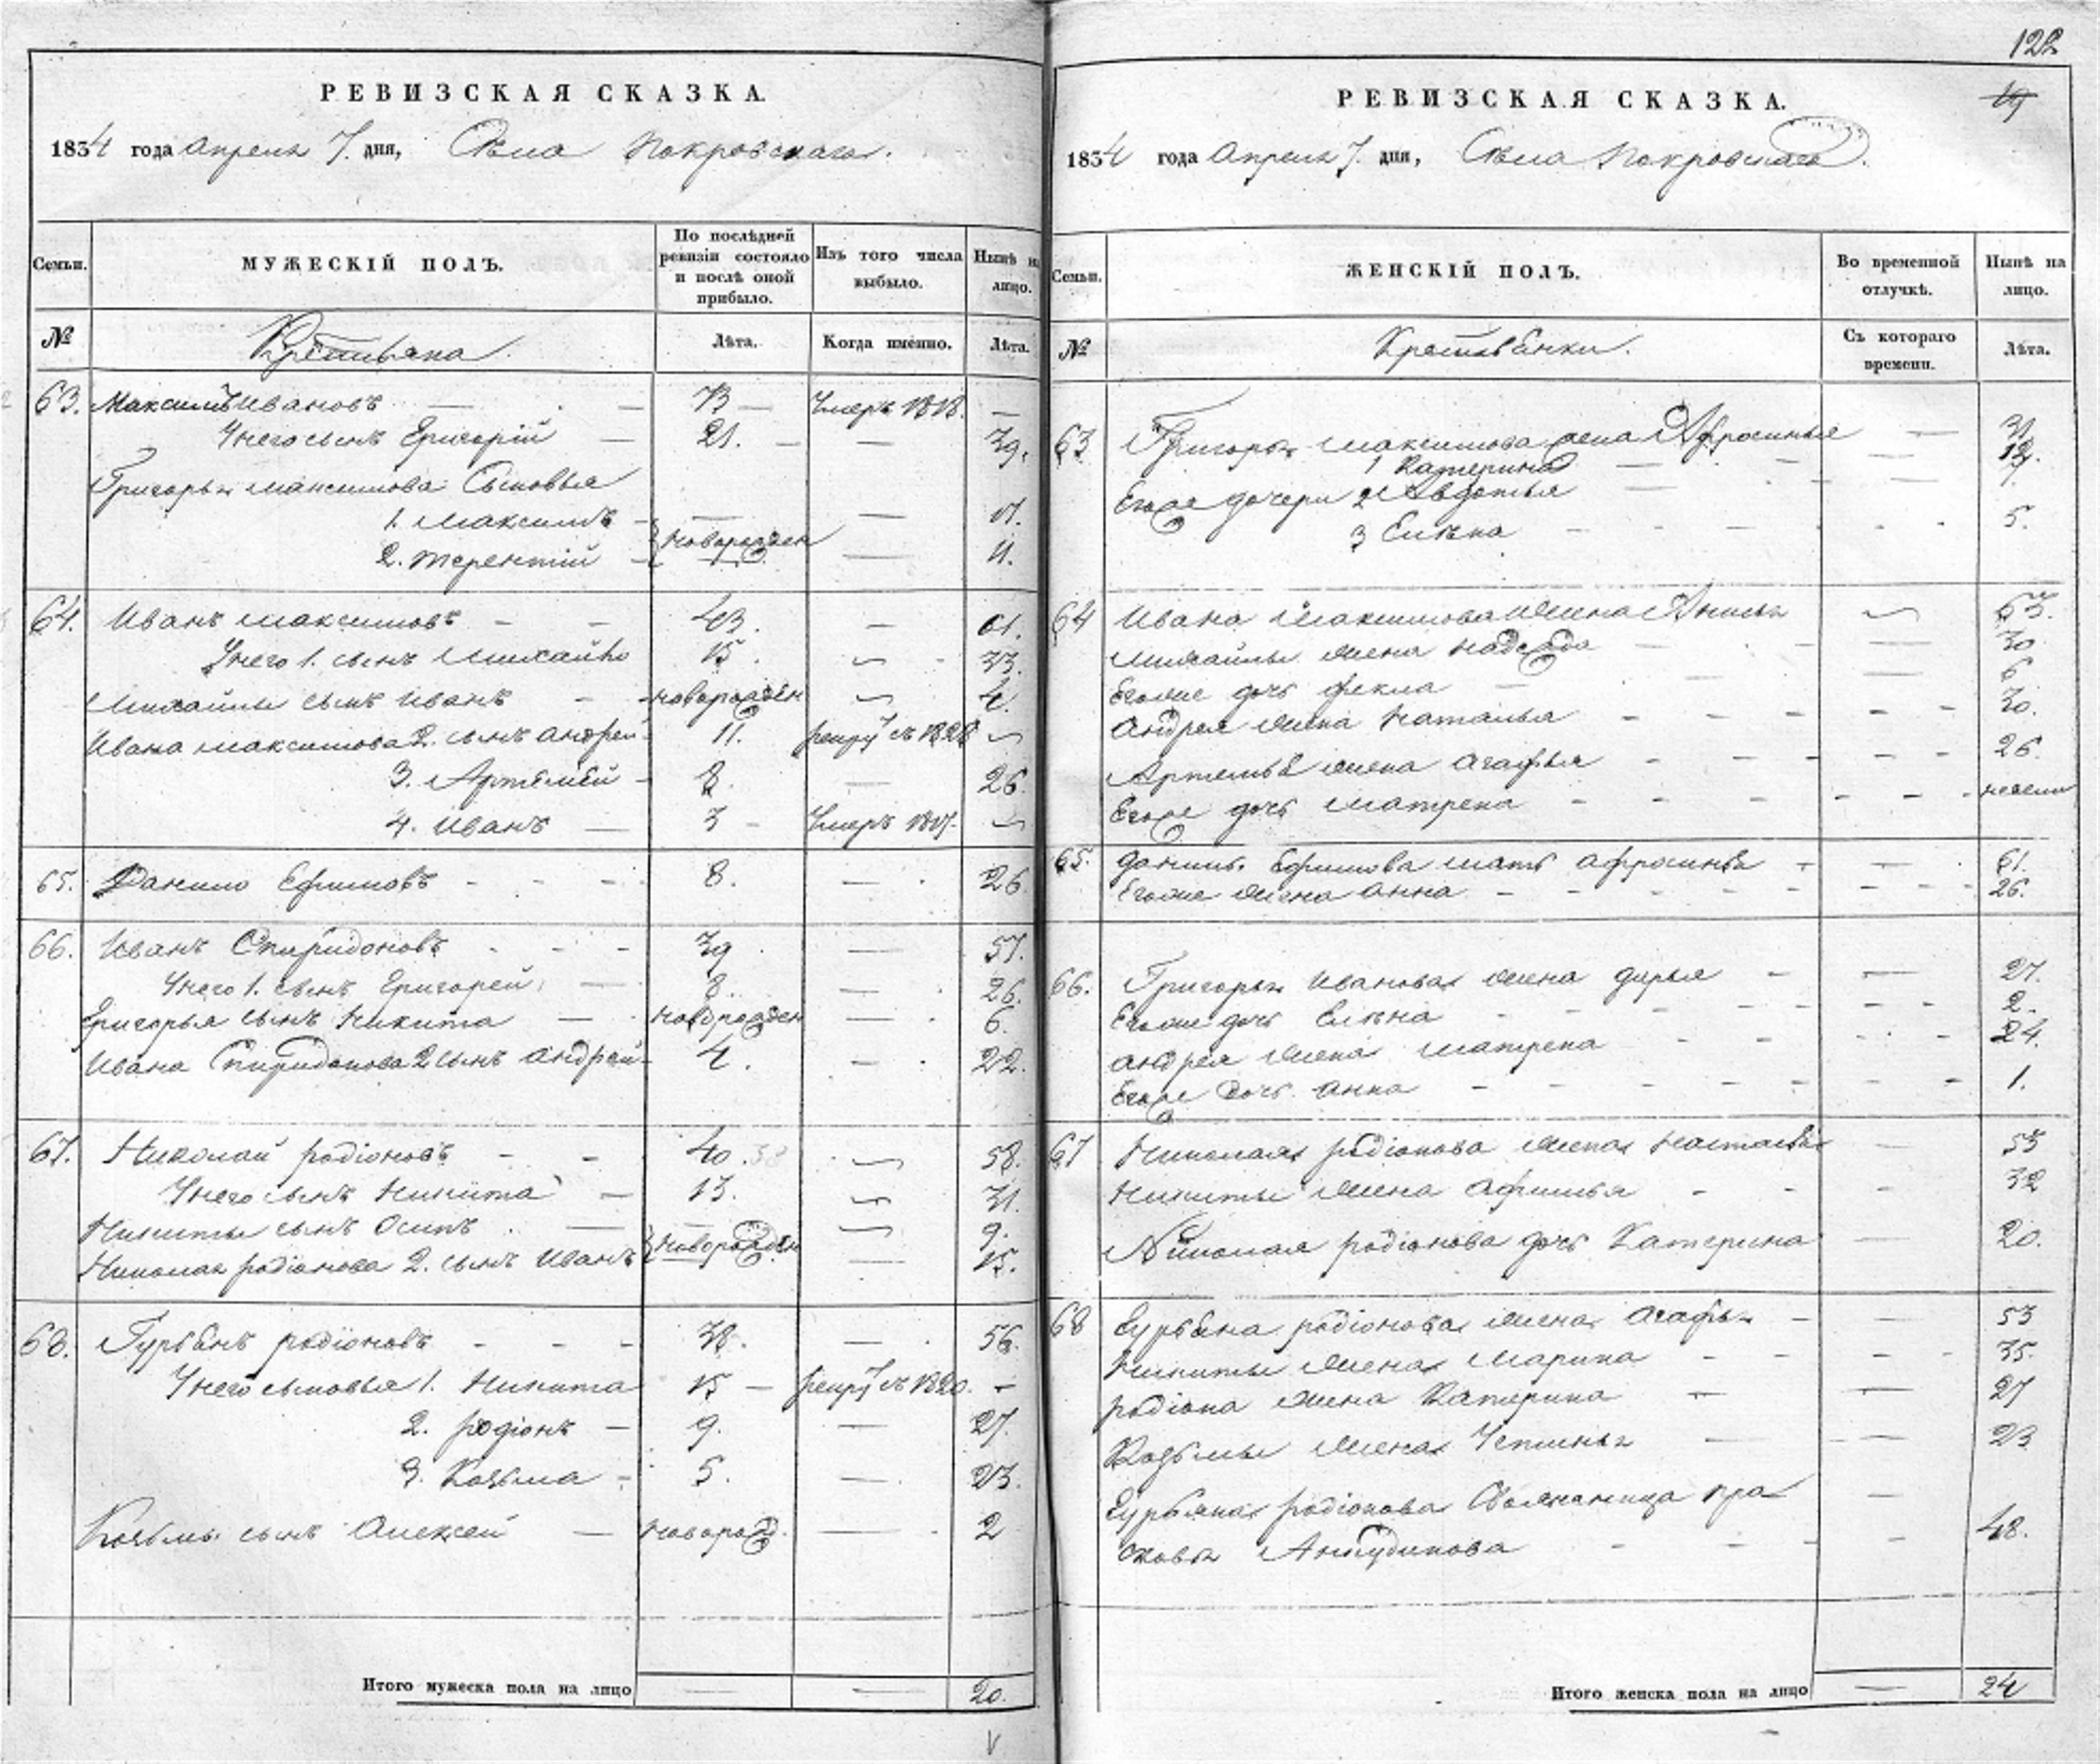 122
РЕВИЗСКАЯ СКАЗКА.
1834 года Апреля 7. дня, Села Покровскаго.
Семьи.
МУЖЕСКІЙ ПОЛЪ.
По послѣдней ревизіи состояло и послѣ оной прибыло.
Изъ того числа выбыло.
Нынѣ на лицо.
№
Крестьяна.
Лѣта.
Когда именно.
Лѣта.
63. Максимъ Ивановъ — 73 — Умеръ 1818. —
У него сынъ Григорій — 21. — — 39.
Григорья Максимова Сыновья
1. Максимъ — — 7.
2. Терентій — новорожден — 4.
64. Иванъ Максимовъ - - 43. — 61.
У него 1. сынъ Михайло 15. — 33.
Михайлы сынъ Иванъ - - новорожден — 4.
Ивана Максимова 2. сынъ Андрей - 11. рекру съ 1828 —
3. Артемей - 8. — 26.
4. Иванъ — 3 - Умеръ —
65. Данило Ефимовъ - - - 8. — 26
66. Иванъ Спиридоновъ - - - 39 — 57.
У него 1. сынъ Григорей — 8. — 26.
Григорья сынъ Никита — новорожден — 6.
Ивана Спиридонова 2 сынъ Андрей - 4. — 22.
67. Николай родіоновъ - - 40. 58.
У него сынъ Никита — 13. 31.
Никиты сынъ Осипъ — 9.
Николая родіонова 2. сынъ Иванъ новорожден — 15.
68. Гурьянъ родіоновъ - - - 38. — 56.
У него сыновья 1. Никита 15 — рекру съ 1820. -
2. родіонъ — 9. — 27.
3. Козьма - 5. — 23.
Козьмы сынъ Алексей — новорожд. — 2
Итого мужеска пола на лицо — — 20.
РЕВИЗСКАЯ СКАЗКА.
19
1834 года Апреля 7. дня, Села Покровскаго.
Семьи.
ЖЕНСКІЙ ПОЛЪ.
Во временной отлучкѣ.
Нынѣ на лицо.
№
Крестьянки.
Съ котораго времени.
Лѣта.
63 Григорья Максимова жена Афросинья — 31
1 Катерина — 12.
Егоже дочери 2 Авдотья —
3 Елѣна 5.
64 Ивана Максимова жена
Михайлы жена надежда — 30
Егоже дочь фекла — 6
Андрея жена Наталья 30.
Артемья жена Агафья 26.
Егоже дочь Матрена недели
65. данилы Ефимова мать Афросинья 61.
Егоже жена Анна 26.
66. Григорья Иванова жена дарья — 27.
Егоже дочь Елѣна 2.
Андрея жена Матрена 24.
Егоже дочь Анна 1.
67 Николая родіонова жена Настасья — 55
Никиты жена Афимья 32
Николая родіонова дочь Катерина — 20.
68 Гурьяна родіонова жена Агафья — 53
Никиты жена Марина 35.
родіона жена Катерина — 27
Козьмы жена Устинья — 23
Гурьяна родіонова Свояченица пра
сковья 48.
Итого женска пола на лицо — 24